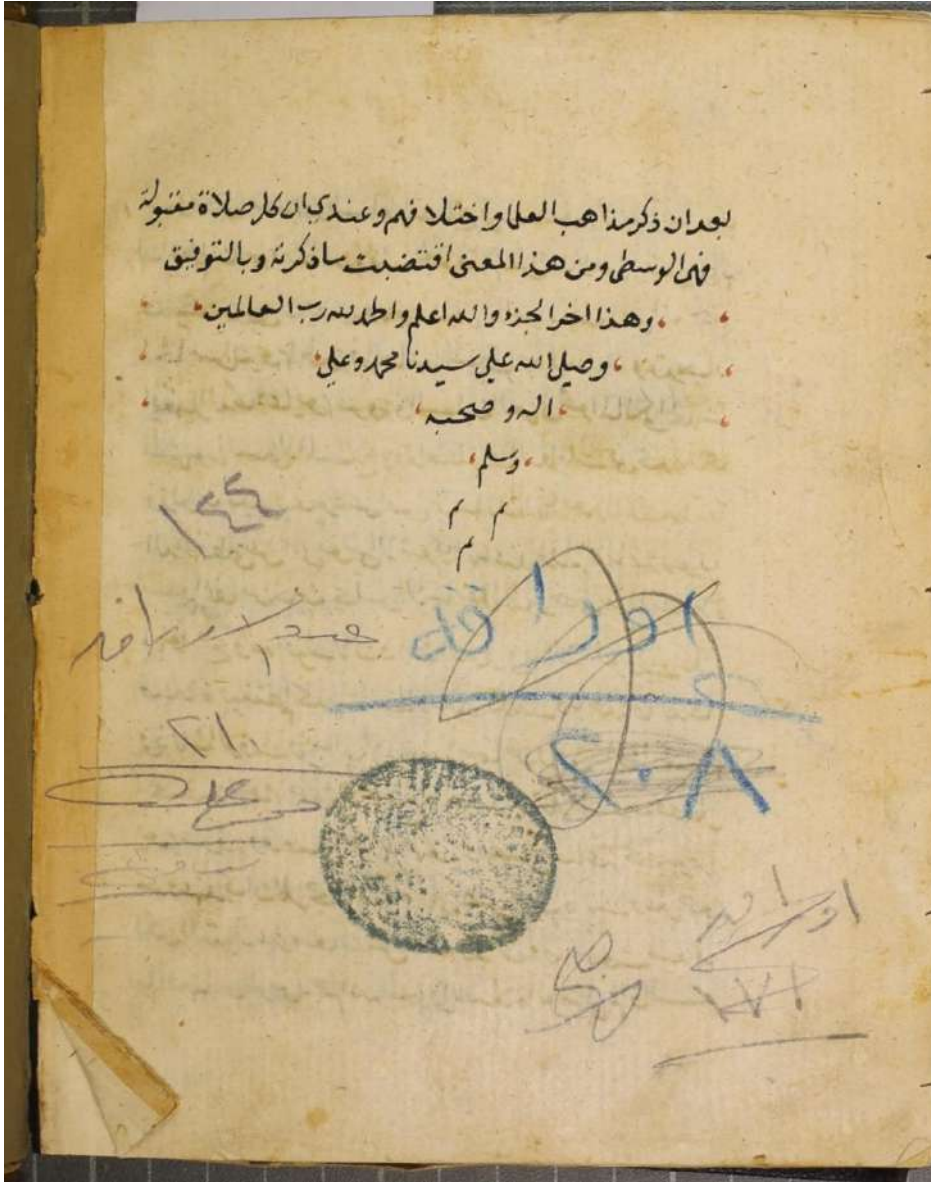 بعد ان ذكر مذاهب العلما واختلافهم وعندي ان كل صلاة مقبولة
فهى الوسطى ومن هذا المعنى اقتضبت ماذكرته وبالتوفيق
وهذا اخر الجزء والله اعلم والحمد لله رب العالمين
وصلى الله على سيدنا محمد وعلى
اله وصحبه
وسلم
م م
م
١٤٤
اوراقه
٢٠٨
٢١٠
١٧١